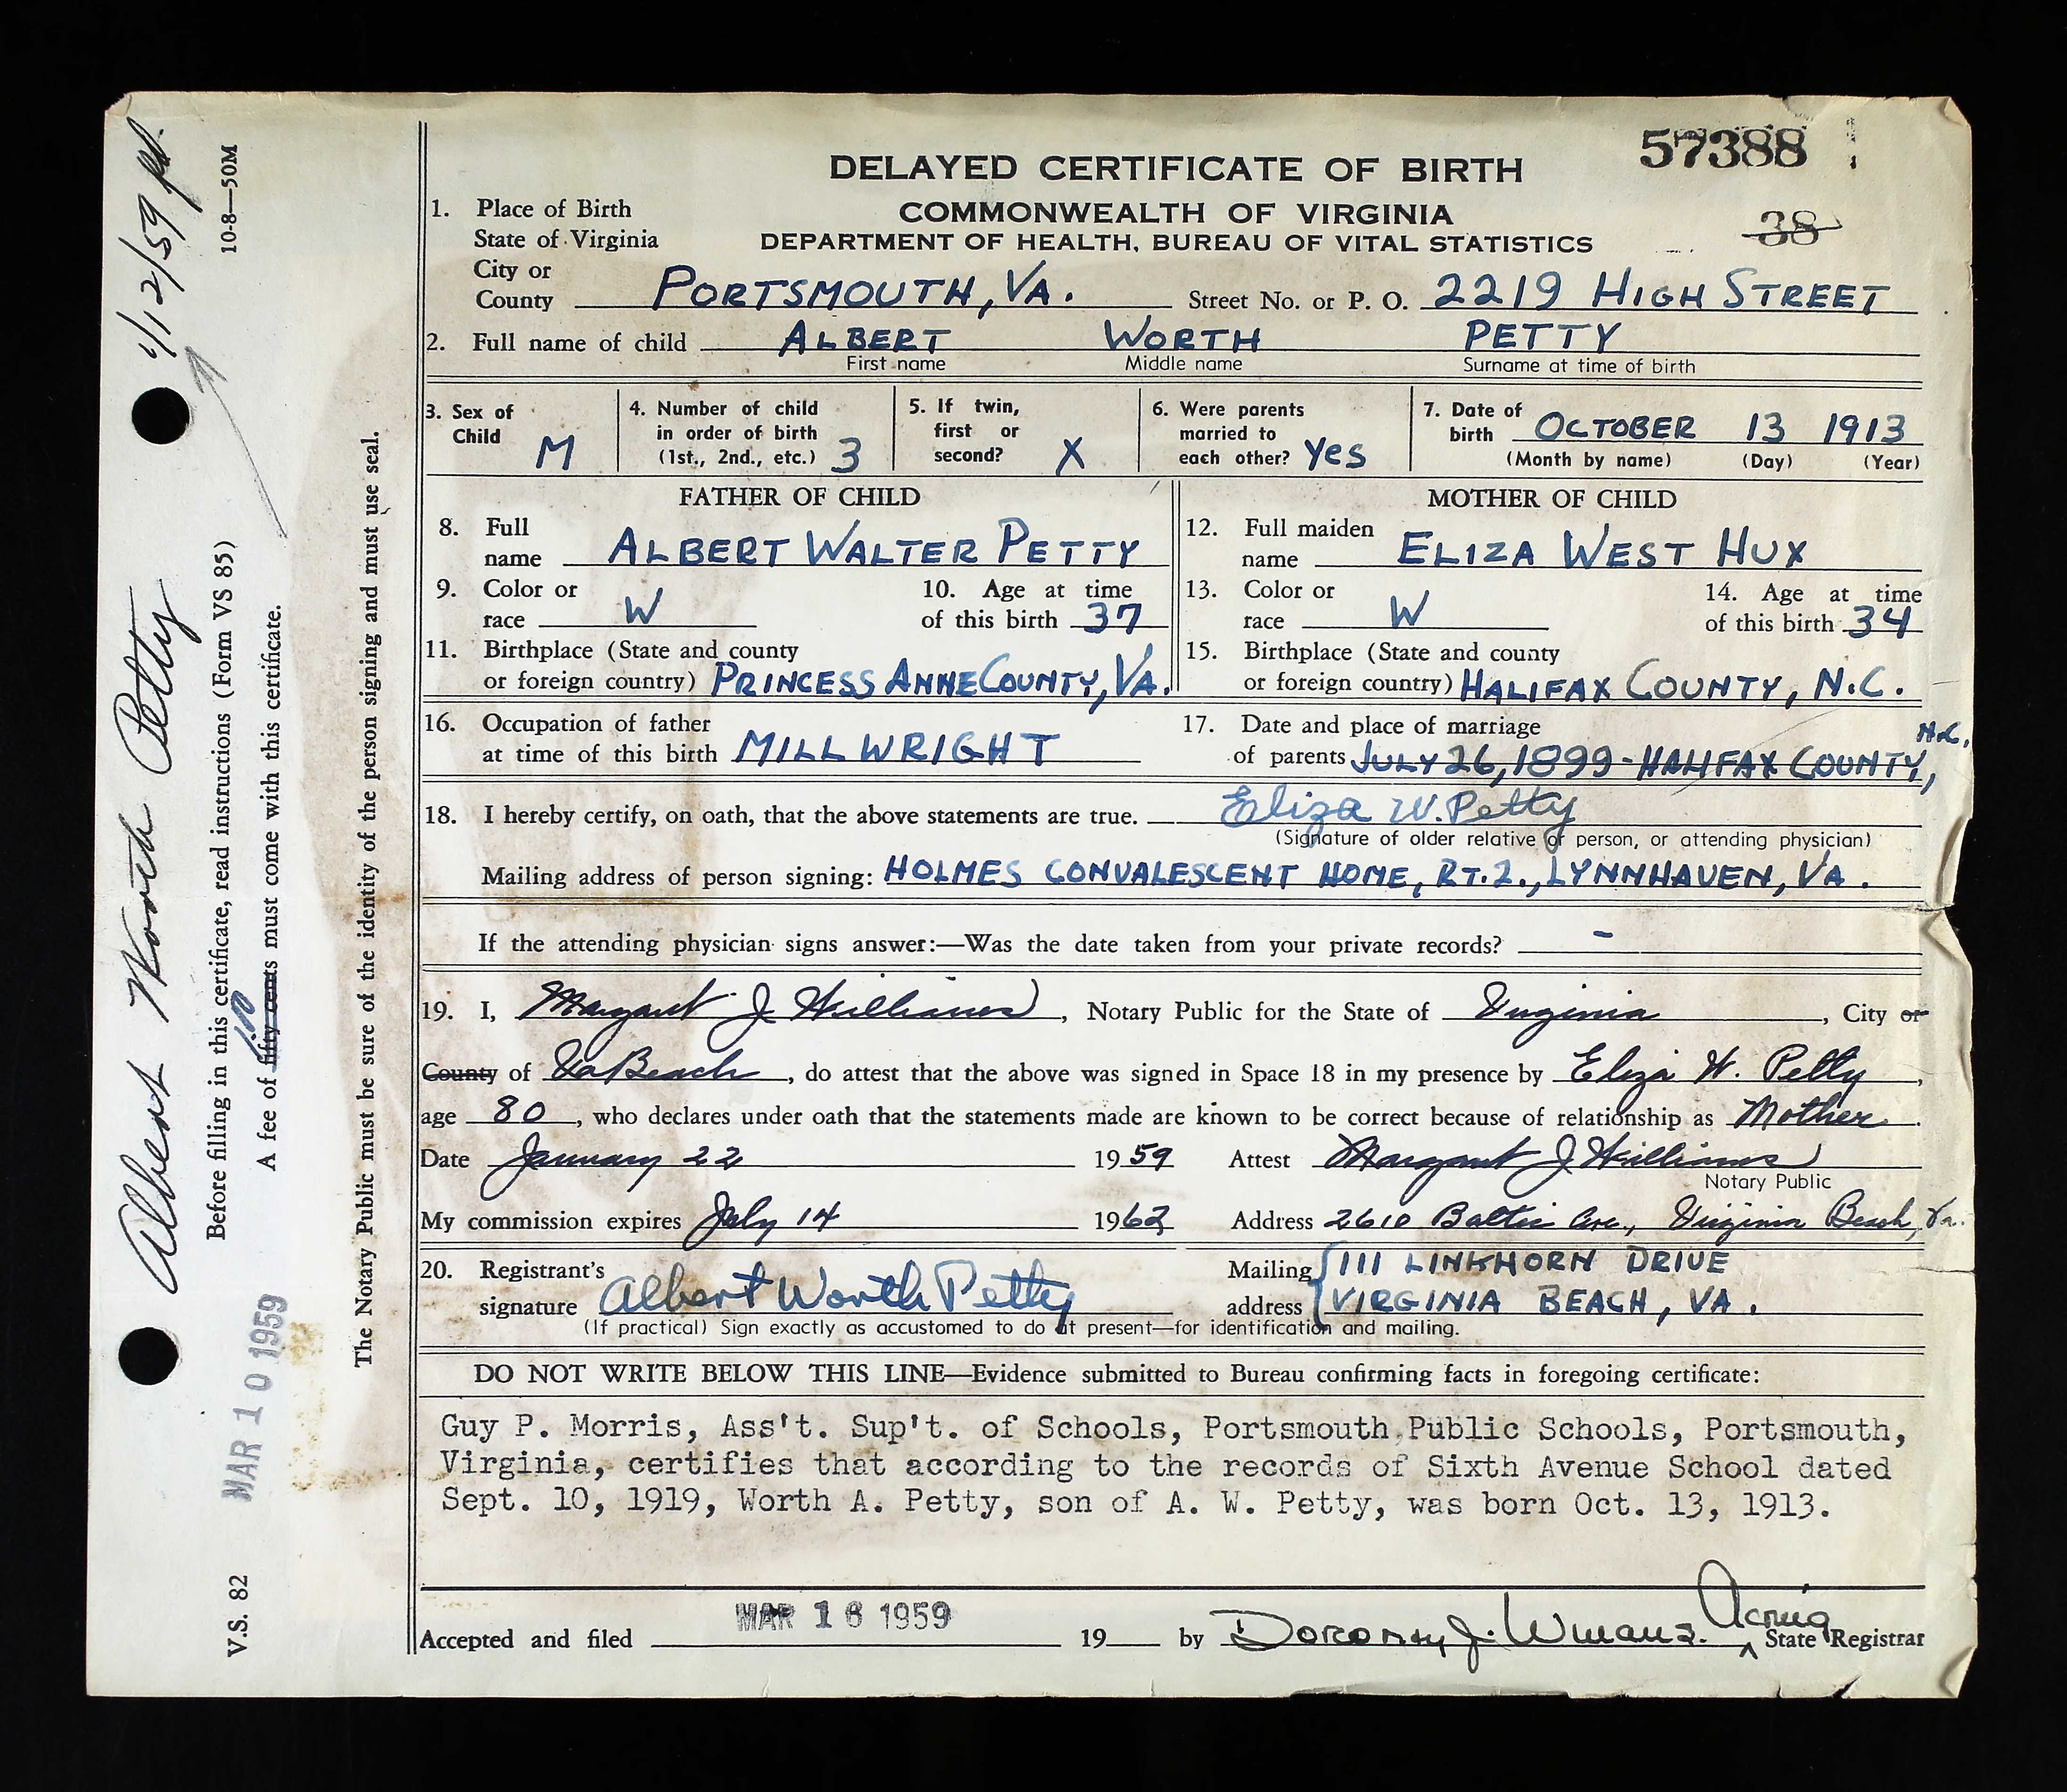 57388
DELAYED CERTIFICATE OF BIRTH
COMMONWEALTH OF VIRGINIA
38
DEPARTMENT OF HEALTH, BUREAU OF VITAL STATISTICS
1. Place of Birth
State of Virginia
City or
County PORTSMOUTH, VA. Street No. or P. O. 2219 HIGH STREET
2. Full name of child ALBERT WORTH PETTY
First name Middle name Surname at time of birth
3. Sex of Child M
4. Number of child in order of birth (1st., 2nd., etc.) 3
5. If twin, first or second? X
6. Were parents married to each other? Yes
7. Date of birth OCTOBER 13 1913
(Month by name) (Day) (Year)
FATHER OF CHILD
8. Full name ALBERT WALTER PETTY
9. Color or race W
10. Age at time of this birth 37
11. Birthplace (State and county
or foreign country) PRINCESS ANNE COUNTY, VA.
MOTHER OF CHILD
12. Full maiden name ELIZA WEST HUX
13. Color or race W
14. Age at time of this birth 34
15. Birthplace (State and county
or foreign country) HALIFAX COUNTY, N.C.
16. Occupation of father
at time of this birth MILLWRIGHT
17. Date and place of marriage
of parents JULY 26, 1899 - HALIFAX COUNTY, N.C.
18. I hereby certify, on oath, that the above statements are true. Eliza W. Petty
(Signature of older relative or person, or attending physician)
Mailing address of person signing: HOLMES CONVALESCENT HOME, RT. 2., LYNNHAVEN, VA.
If the attending physician signs answer:—Was the date taken from your private records? -
19. I, Margaret J Williams, Notary Public for the State of Virginia, City or
County of Va Beach, do attest that the above was signed in Space 18 in my presence by Eliza W. Petty,
age 80, who declares under oath that the statements made are known to be correct because of relationship as Mother.
Date January 22 1959 Attest Margaret J Williams
Notary Public
My commission expires July 14 1962 Address 2610 Baltic Ave., Virginia Beach, Va.
20. Registrant's
signature Albert Worth Petty
Mailing address 111 LINKHORN DRIVE
VIRGINIA BEACH, VA.
(If practical) Sign exactly as accustomed to do at present—for identification and mailing.
DO NOT WRITE BELOW THIS LINE—Evidence submitted to Bureau confirming facts in foregoing certificate:
Guy P. Morris, Ass't. Sup't. of Schools, Portsmouth Public Schools, Portsmouth,
Virginia, certifies that according to the records of Sixth Avenue School dated
Sept. 10, 1919, Worth A. Petty, son of A. W. Petty, was born Oct. 13, 1913.
Accepted and filed MAR 16 1959 19 by Dorothy J. Winans. Acting State Registrar
V.S. 82
10-8—50M
MAR 10 1959
Albert Worth Petty
1/12/59
Before filling in this certificate, read instructions (Form VS 85)
A fee of fifty cents 1.00 must come with this certificate.
The Notary Public must be sure of the identity of the person signing and must use seal.